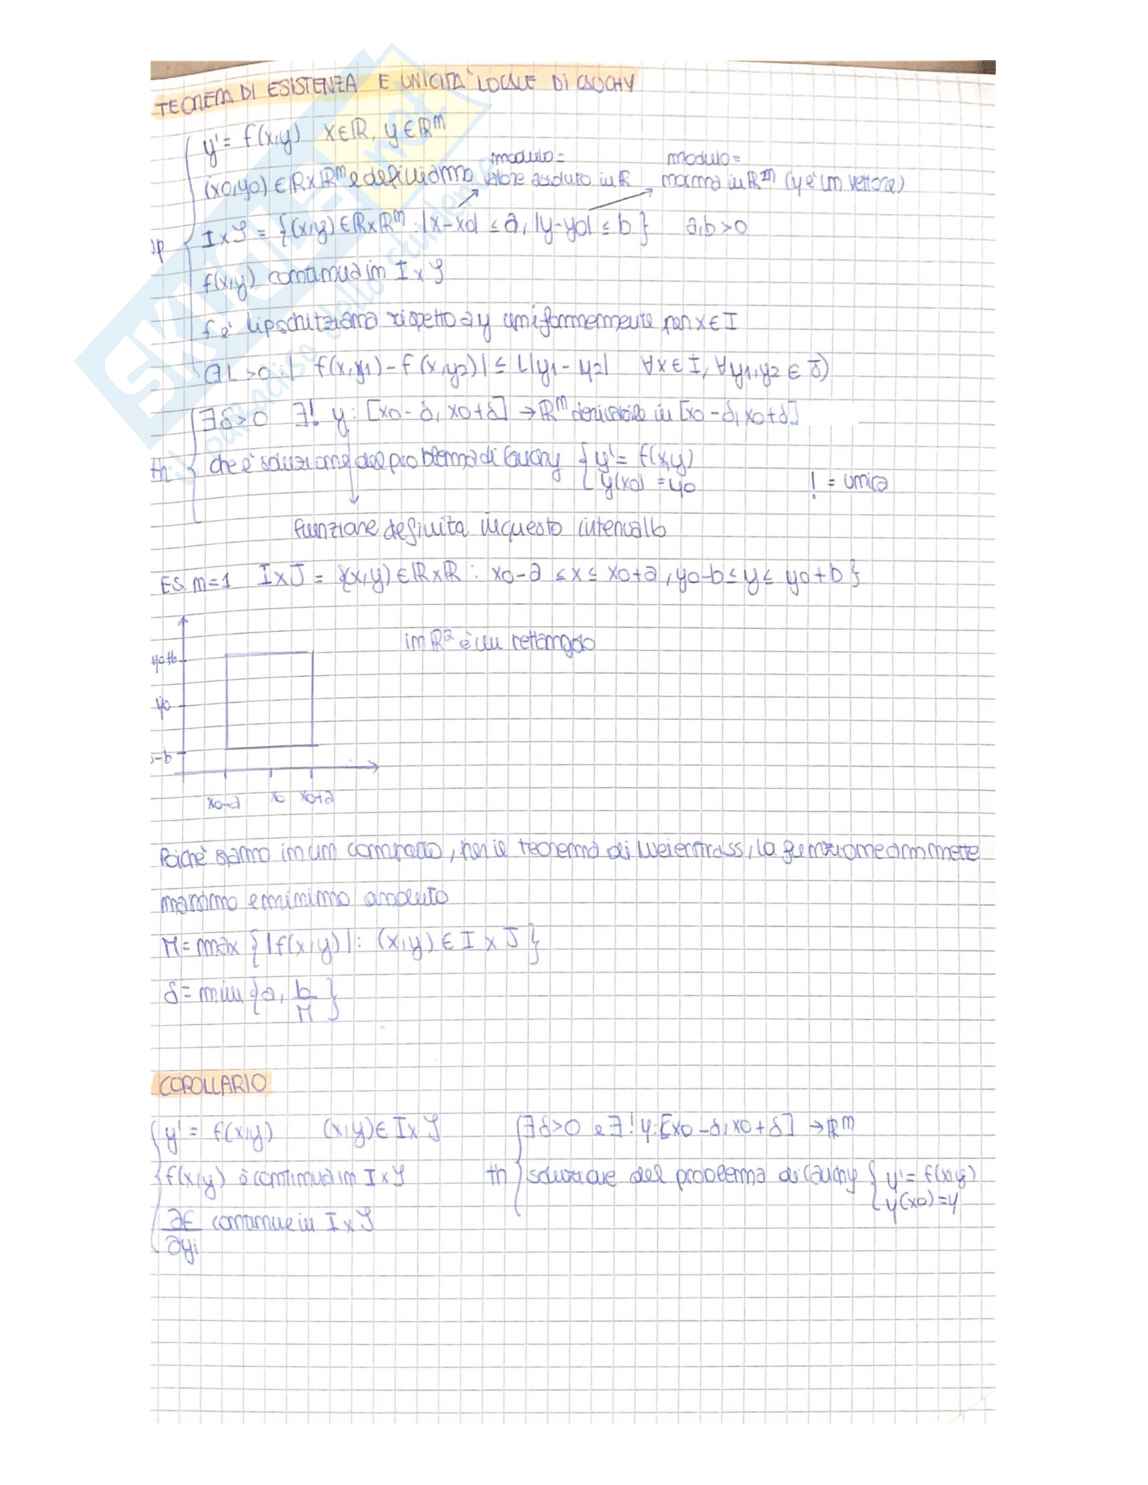 TEOREMA DI ESISTENZA E UNICITA' LOCALE DI CAUCHY
y' = f(x,y) x∈ℝ, y∈ℝᵐ
modulo = modulo =
(x0,y0) ∈ ℝ×ℝᵐ e definiamo valore assoluto in ℝ norma in ℝᵐ (y è un vettore)
I×J = {(x,y)∈ℝ×ℝᵐ : |x-x0| ≤ a, |y-y0| ≤ b} a,b>0
f(x,y) continua in I×J
f è lipschitziana rispetto a y uniformemente per x∈I
(∃L>0 : | f(x,y1) - f(x,y2)| ≤ L|y1-y2| ∀x∈I, ∀y1,y2∈J)
∃δ>0 ∃! y: [x0-δ, x0+δ] → ℝᵐ derivabile in [x0-δ, x0+δ]
th: che è soluzione del problema di Cauchy { y' = f(x,y)
y(x0) = y0 ! = unica
funzione definita in questo intervallo
ES m=1 I×J = {(x,y)∈ℝ×ℝ : x0-a ≤ x ≤ x0+a, y0-b ≤ y ≤ y0+b}
in ℝ² è un rettangolo
y0+b
y0
-b
x0-a x0 x0+a
Poiché siamo in un compatto, per il teorema di Weierstrass, la funzione ammette
massimo e minimo assoluto
M = max {|f(x,y)| : (x,y) ∈ I×J}
δ = min {a, b/M}
COROLLARIO
{ y' = f(x,y) (x,y)∈I×J { ∃δ>0 e ∃! y:[x0-δ, x0+δ] → ℝᵐ
f(x,y) è continua in I×J th soluzione del problema di Cauchy { y' = f(x,y)
y(x0)=y
∂f/∂yi continue in I×J